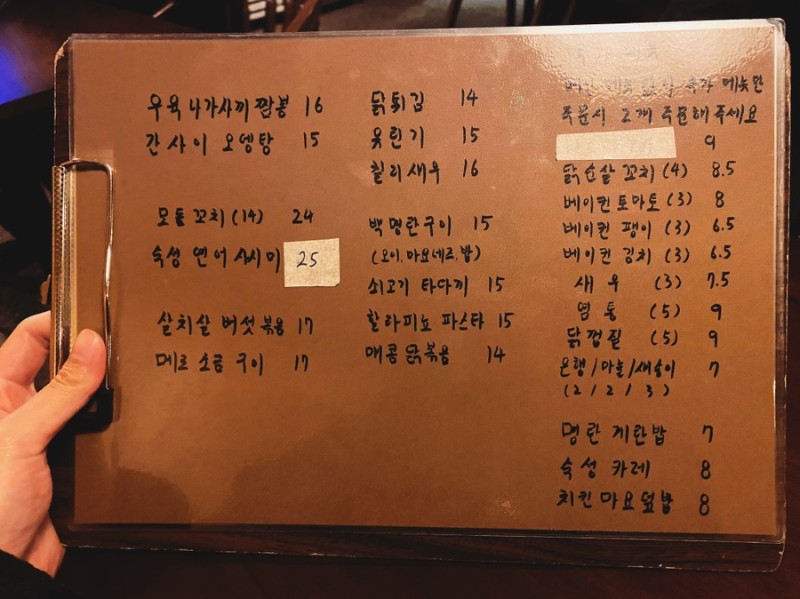 우육 나가사끼 짬뽕 16
간사이 오뎅탕 15
모듬꼬치 (14) 24
숙성 연어 사시미 25
살치살 버섯볶음 17
메로 소금 구이 17
닭튀김 14
유린기 15
칠리새우 16
백명란구이 15
(오이, 마요네르, 밥)
쇠고기 타다끼 15
할라피뇨 파스타 15
매콤 닭볶음 14
메뉴만
주문시 2개 주문해 주세요
9
닭순살 꼬치 (4) 8.5
베이컨토마토 (3) 8
베이컨 팽이 (3) 6.5
베이컨 김치 (3) 6.5
새우 (3) 7.5
염통 (5) 9
닭껍질 (5) 9
은행/마늘/새송이 7
(2/2/3)
명란 계란밥 7
숙성 카레 8
치킨 마요덮밥 8